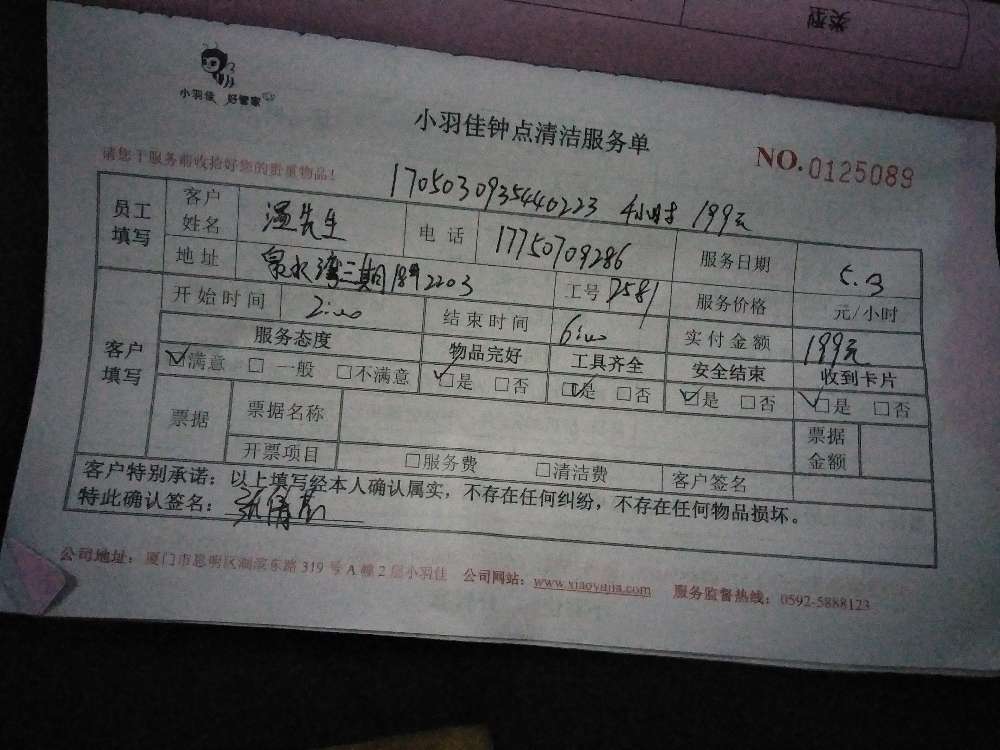 类型
小羽佳 好管家
小羽佳钟点清洁服务单
NO.0125089
请您于服务前收拾好您的贵重物品!
1705030935440223 4小时 199元
员工填写 客户姓名 温先生 电话 17750709286 服务日期 5.3
地址 泉水湾三期18# 2203 工号 2581 服务价格 元/小时
客户填写 开始时间 2:00 结束时间 6:00 实付金额 199元
服务态度 物品完好 工具齐全 安全结束 收到卡片
☑满意 □一般 □不满意 ☑是 □否 ☑是 □否 ☑是 □否 ☑是 □否
票据 票据名称 票据金额
开票项目 □服务费 □清洁费 客户签名
客户特别承诺:以上填写经本人确认属实,不存在任何纠纷,不存在任何物品损坏。
特此确认签名:
公司地址:厦门市思明区湖滨东路319号A幢2层小羽佳 公司网站:www.xiaoyujia.com 服务监督热线:0592-5888123